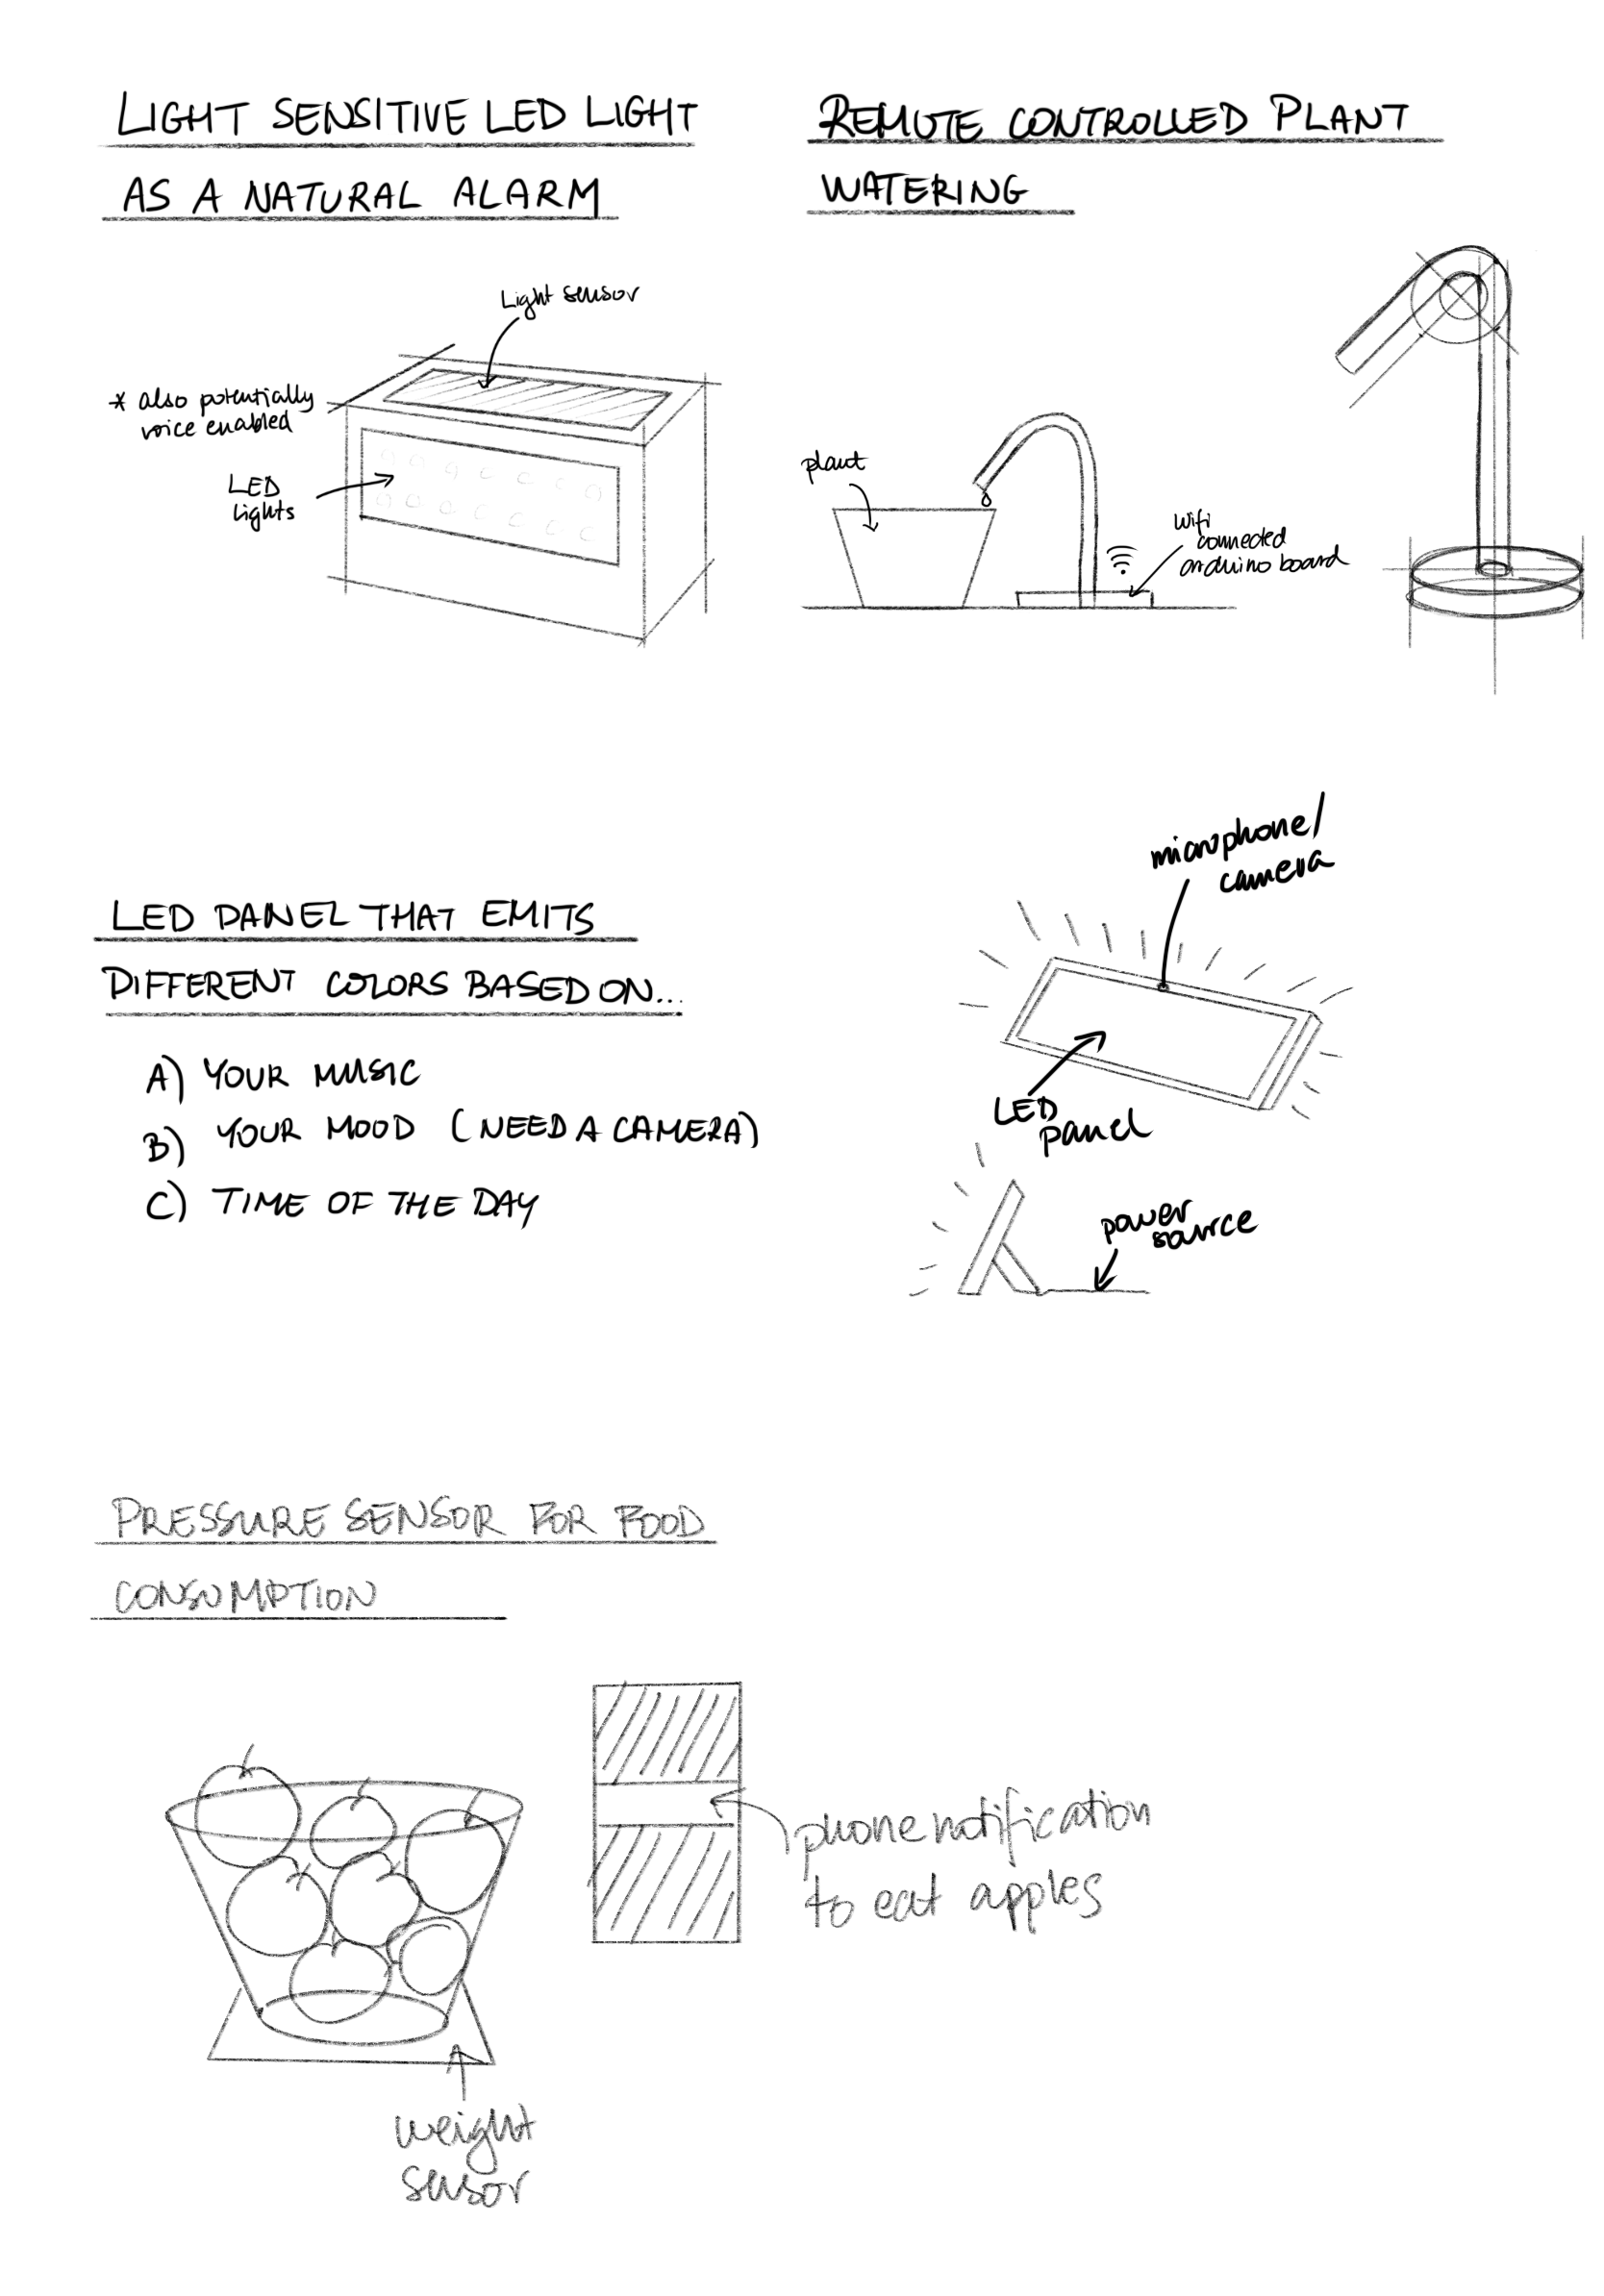 LIGHT SENSITIVE LED LIGHT
AS A NATURAL ALARM
Light sensor
* also potentially
voice enabled
LED
lights
REMOTE CONTROLLED PLANT
WATERING
plant
wifi
connected
arduino board
LED PANEL THAT EMITS
DIFFERENT COLORS BASED ON...
A) YOUR MUSIC
B) YOUR MOOD (NEED A CAMERA)
C) TIME OF THE DAY
microphone/
camera
LED
panel
power
source
PRESSURE SENSOR FOR FOOD
CONSUMPTION
phone notification
to eat apples
weight
sensor